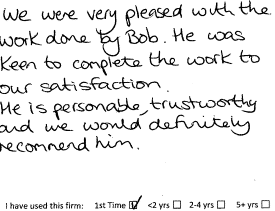 We were very pleased with the
work done by Bob. He was
Keen to complete the work to
our satisfaction.
He is personable, trustworthy
and we would definitely
recommend him.
I have used this firm: 1st Time ☑ <2 yrs ☐ 2-4 yrs ☐ 5+ yrs ☐